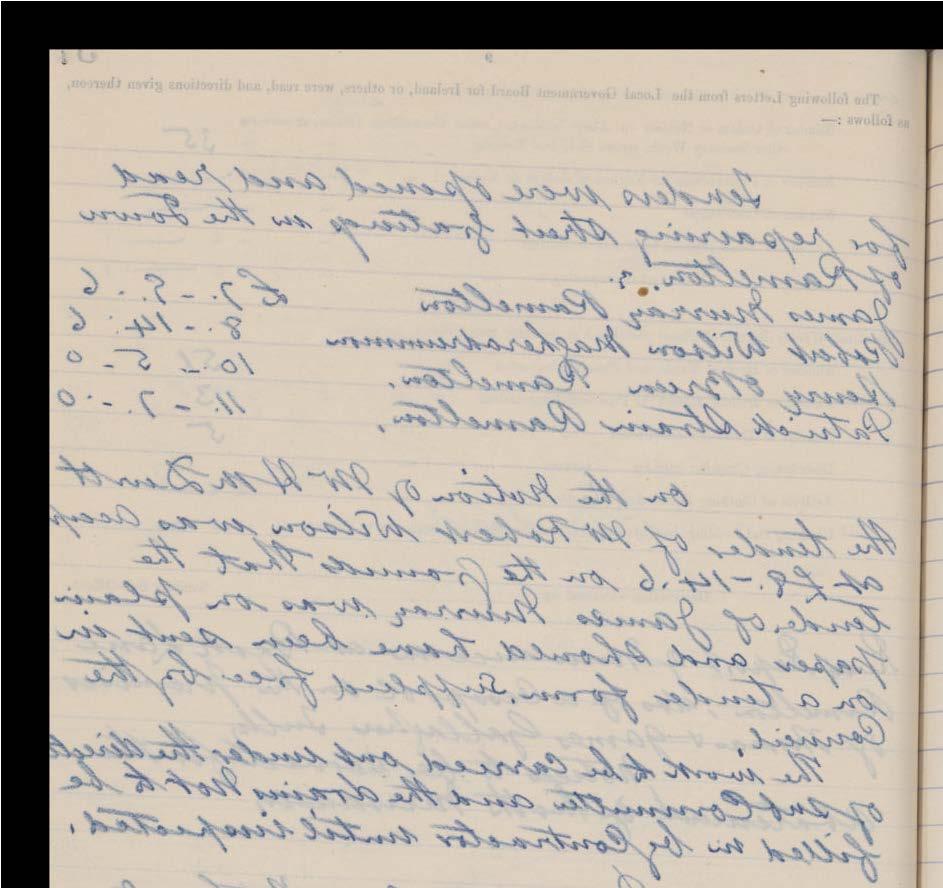 9
The following Letters from the Local Government Board for Ireland, or others, were read, and directions given thereon,
as follows :—
Tenders were opened and read
for repairing street gratings in the Town
of Ramelton.
James Murray Ramelton £7.-5.-6
Robert Wilson Magherdrummon 8.-14.6
Henry O'Breen Ramelton. 10.-5-0
Patrick Strain Ramelton. 11.-7.-0
On the motion of Mr H McDevitt
the tender of Mr Robert Wilson was accep
at £8.-14.6 on the grounds that the
tender of James Murray was on plain
paper and should have been sent in
on a tender form. supplied free by the
Council.
The work to be carried out under the direct
of sub Committee and the drains not to be
filled in by Contractor until inspected.